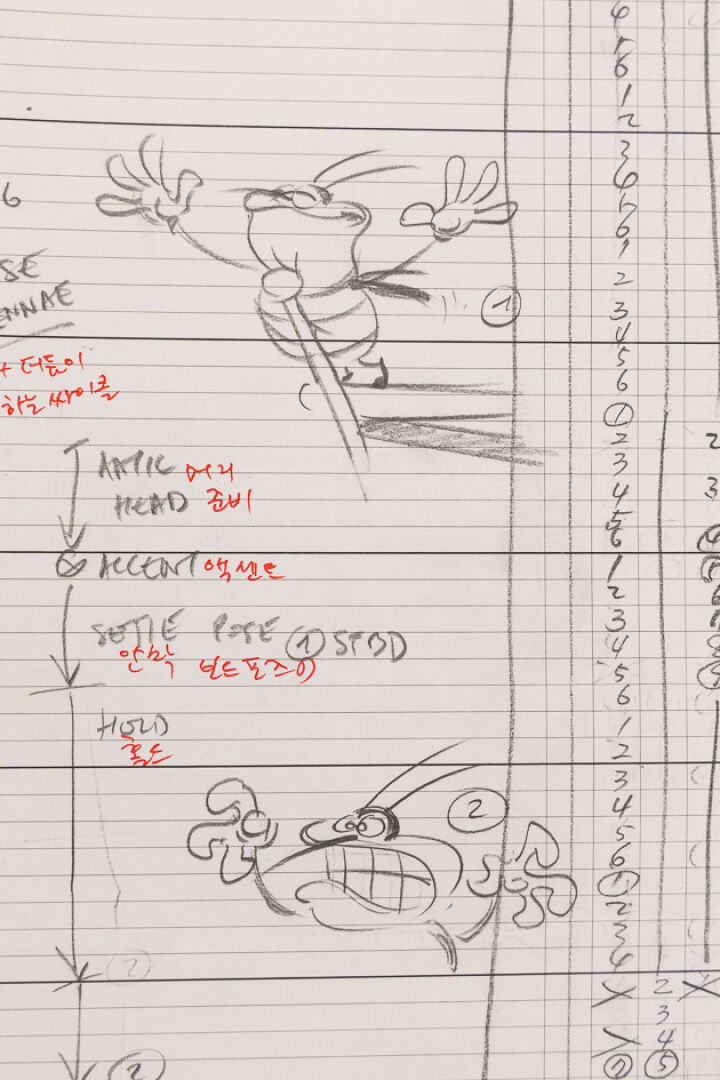 6
SE
ENNAE
+ 더듬이
하는 싸이클
①
ANTIC 머리
HEAD 준비
ACCENT 액센트
SETTLE POSE ① STBD
안착 보드포즈 ①
HOLD
홀드
②
②
②
6
1
2
3
6
1
2
3
4
5
6
①
2
3
4
5
6
1
2
3
4
5
6
1
2
3
4
5
6
①
2
3
4
X 2 X
3
4
⑤
2
3